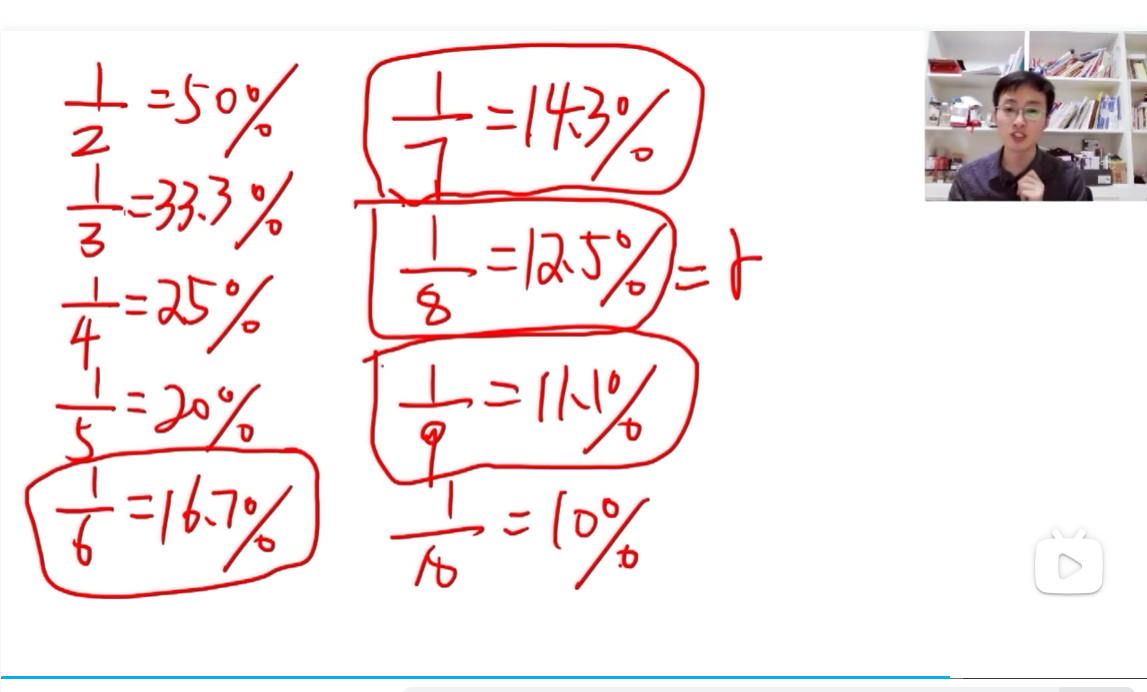 1/2 = 50%
1/3 = 33.3%
1/4 = 25%
1/5 = 20%
1/6 = 16.7%
1/7 = 14.3%
1/8 = 12.5% =
1/9 = 11.1%
1/10 = 10%